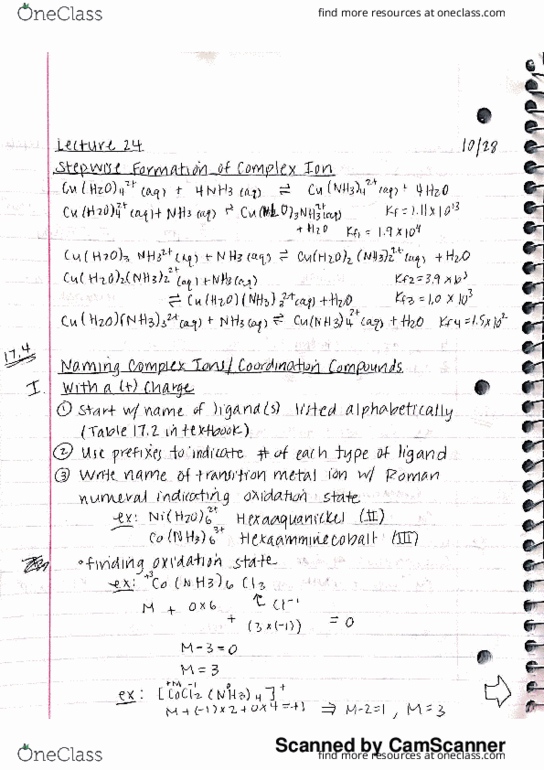 OneClass
find more resources at oneclass.com
Lecture 24
10/28
Stepwise Formation of Complex Ion
Cu(H2O)4^2+ (aq) + 4NH3 (aq) ⇌ Cu(NH3)4^2+ (aq) + 4H2O
Cu(H2O)4^2+ (aq) + NH3 (aq) ⇌ Cu(H2O)3NH3^2+ (aq) Kf = 1.11 x 10^13
+ H2O Kf1 = 1.9 x 10^4
Cu(H2O)3 NH3^2+ (aq) + NH3 (aq) ⇌ Cu(H2O)2(NH3)2^2+ (aq) + H2O
Cu(H2O)2(NH3)2^2+ (aq) + NH3 (aq) Kf2 = 3.9 x 10^3
⇌ Cu(H2O)(NH3)3^2+ (aq) + H2O Kf3 = 1.0 x 10^3
Cu(H2O)(NH3)3^2+ (aq) + NH3 (aq) ⇌ Cu(NH3)4^2+ (aq) + H2O Kf4 = 1.5 x 10^2
17.4
Naming Complex Ions/Coordination Compounds
I. With a (+) Charge
① Start w/ name of ligand(s) listed alphabetically
(Table 17.2 in textbook)
② Use prefixes to indicate # of each type of ligand
③ Write name of transition metal ion w/ Roman
numeral indicating oxidation state
ex: Ni(H2O)6^2+ Hexaaquanickel (II)
Co(NH3)6^3+ Hexaamminecobalt (III)
• finding oxidation state
ex: +3 Co(NH3)6 Cl3
M + 0x6 ↑ Cl^-1
+ (3x(-1)) = 0
M-3=0
M=3
ex: [CoCl2(NH3)4]^+
M+(-1)x2+0x4=+1 ⇒ M-2=1, M=3
Scanned by CamScanner
OneClass
find more resources at oneclass.com